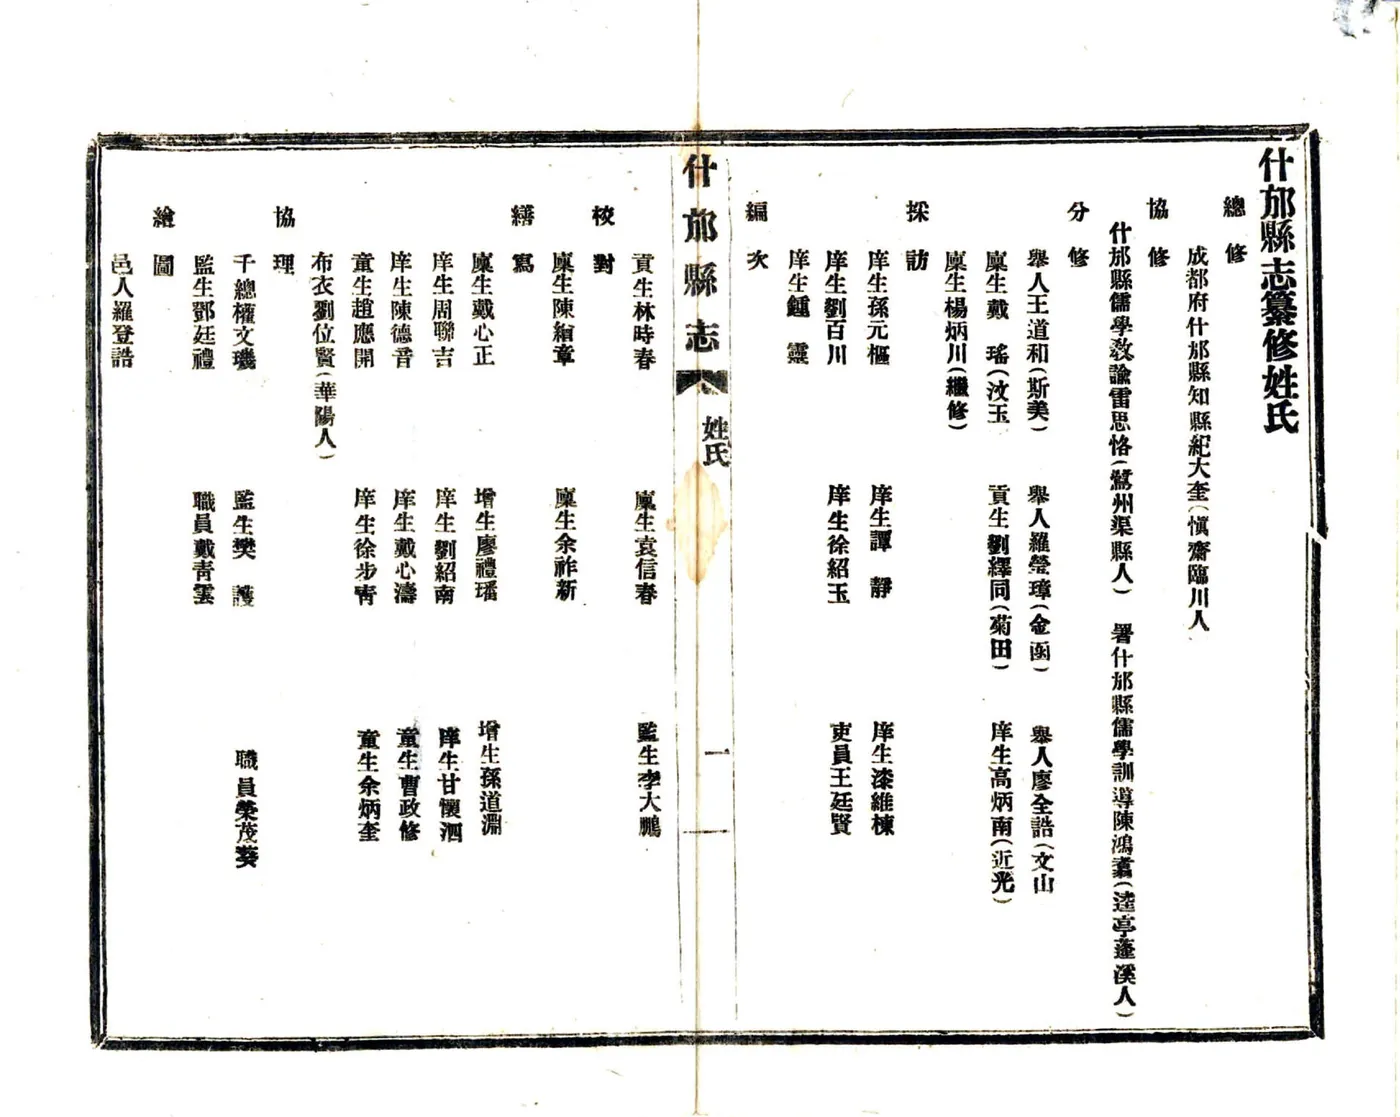 什邡縣志纂修姓氏
總修
成都府什邡縣知縣紀大奎(愼齋臨川人
協修
什邡縣儒學敎諭雷思恪(鷲州渠縣人) 署什邡縣儒學訓導陳鴻翥(逵亭蓬溪人)
分修
舉人王道和(斯美) 舉人羅瑩璋(金函) 舉人廖全誥(文山
廩生戴 瑤(汶玉 貢生劉繹同(菊田) 庠生高炳南(近光)
廩生楊炳川(繼修)
採訪
庠生孫元樞 庠生譚 靜 庠生漆維棟
庠生劉百川 庠生徐紹玉 吏員王廷賢
庠生鍾 靈
編次
什邡縣志
姓氏
一
貢生林時春 廩生袁信春 監生李大鵬
校對
廩生陳繪章 廩生余祚新
繕寫
廩生戴心正 增生廖禮璠 增生孫道淵
庠生周聯吉 庠生劉紹南 庠生甘懷泗
庠生陳德音 庠生戴心濤 童生曹政修
童生趙應開 庠生徐步靑 童生余炳奎
布衣劉位賢(華陽人)
協理
千總權文璣 監生樊 護 職員榮茂葵
監生鄧廷禮 職員戴靑雲
繪圖
邑人羅登誥